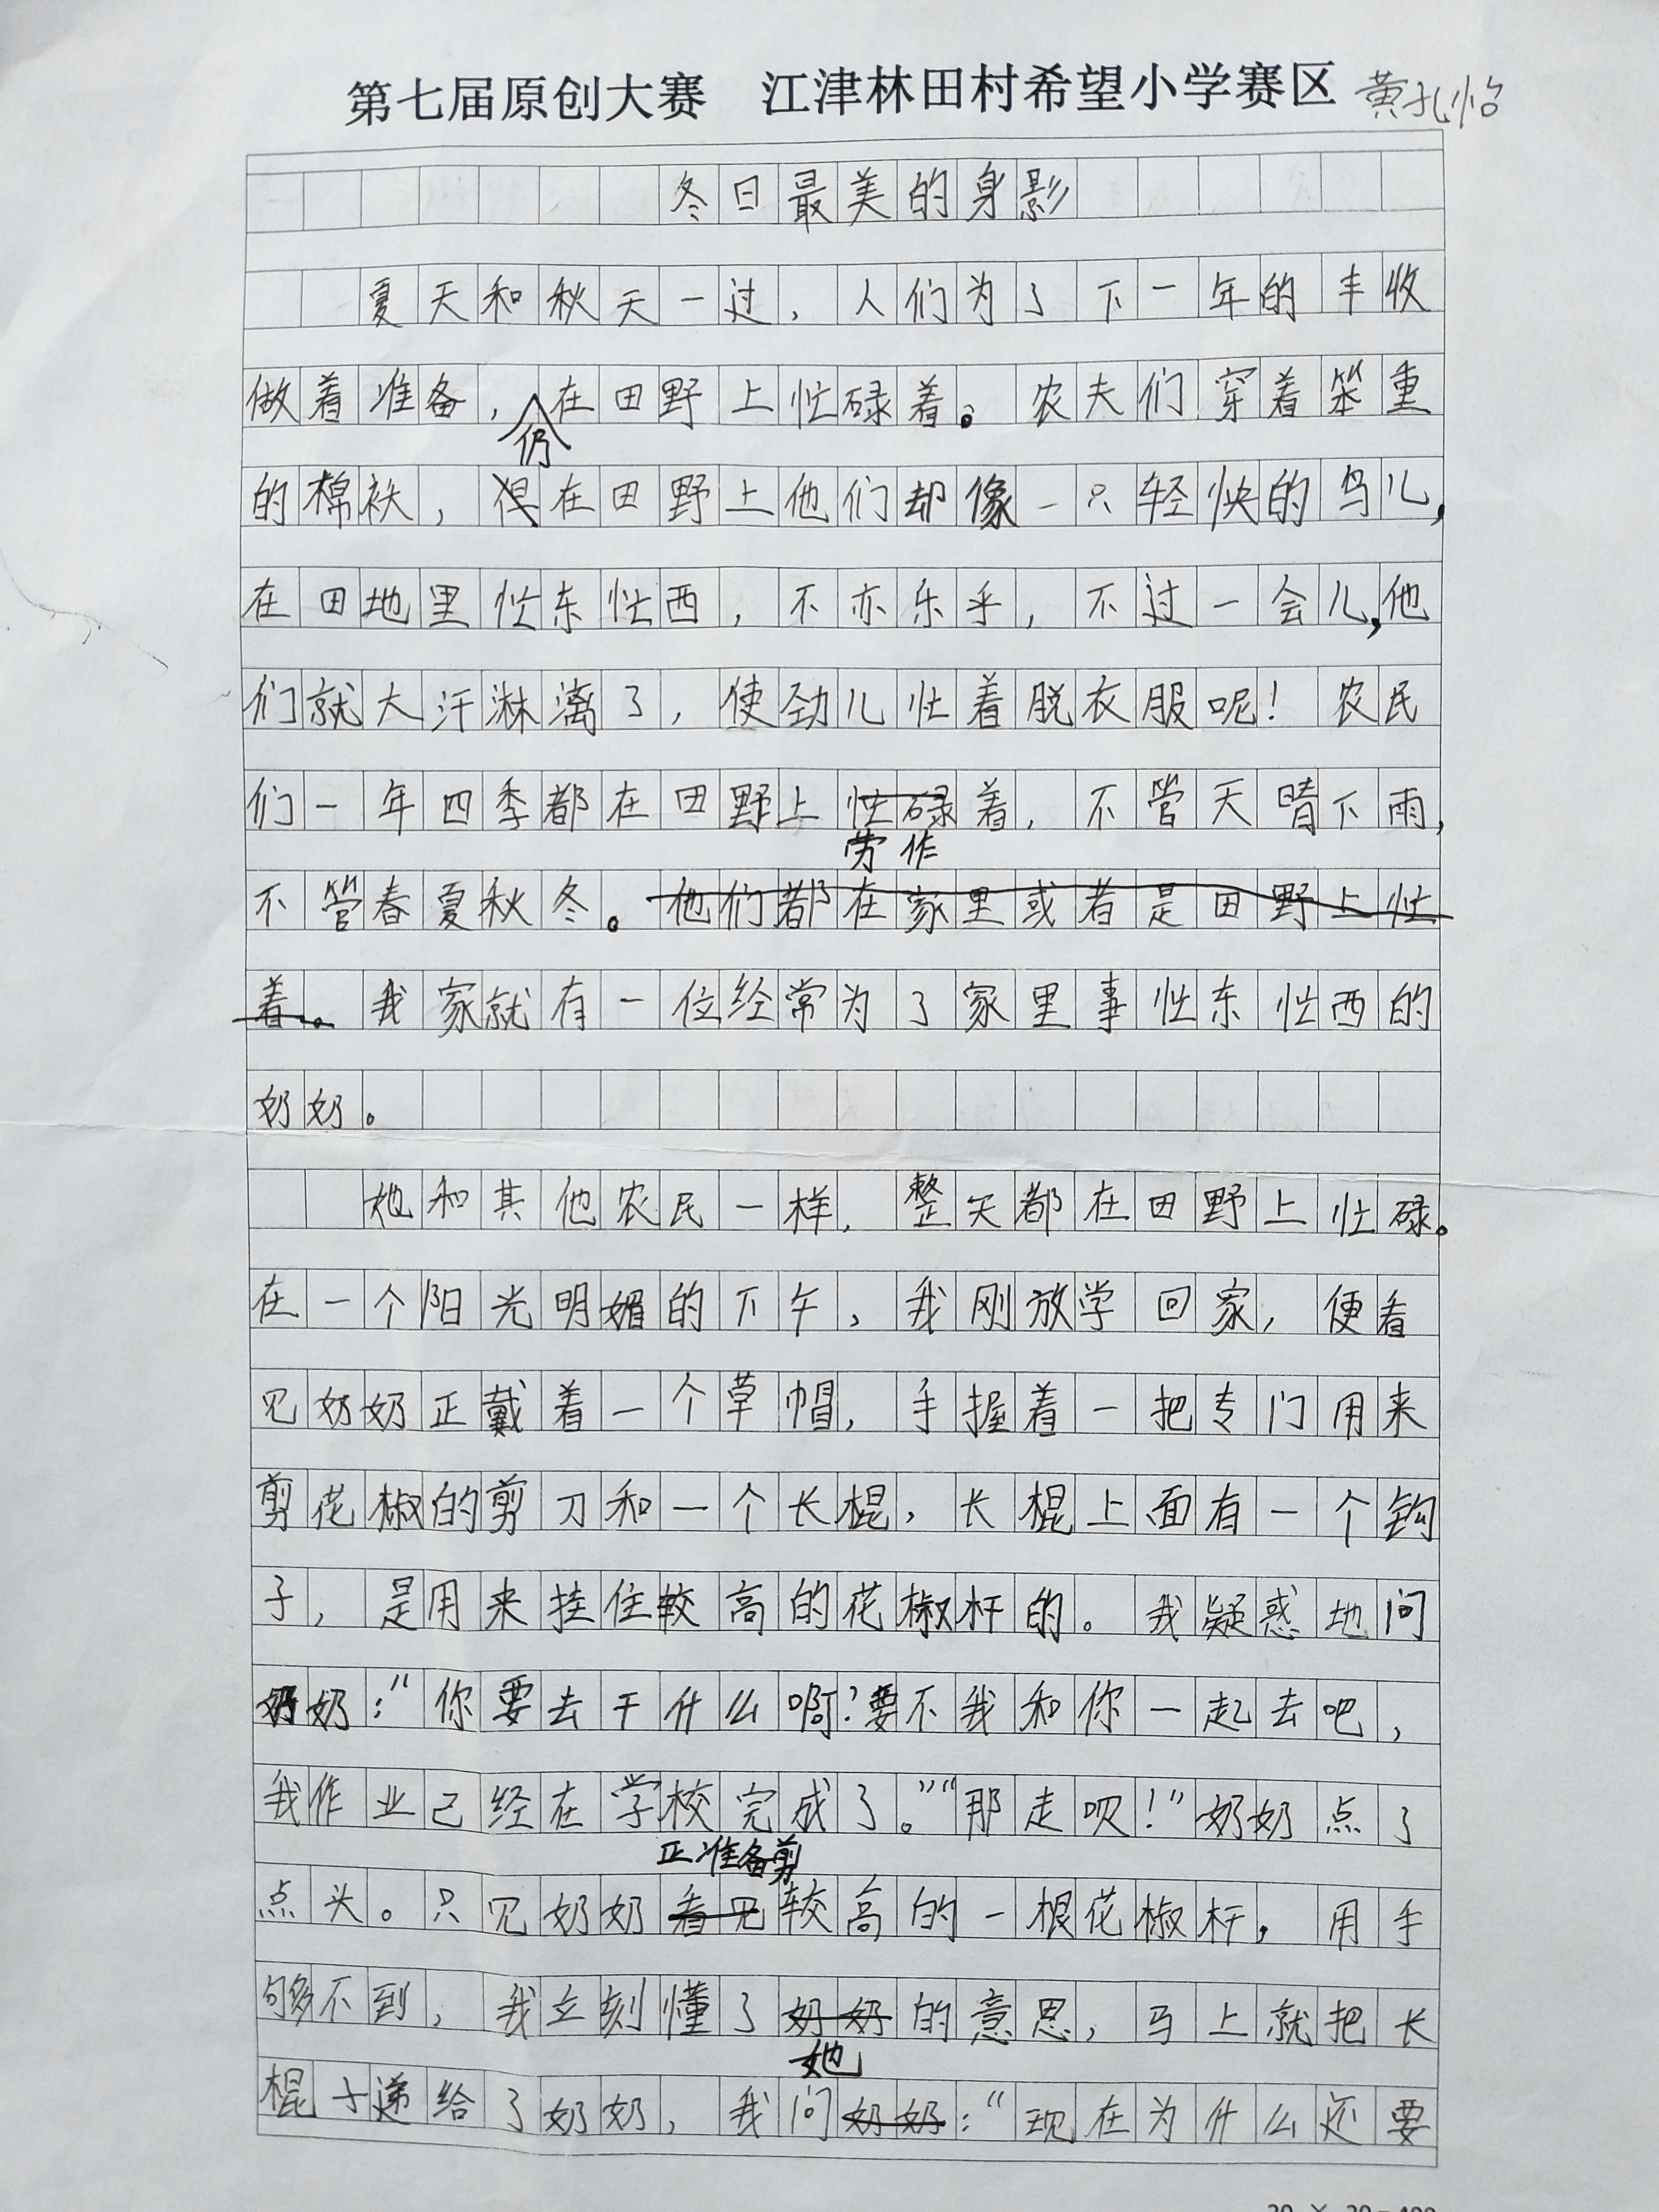 第七届原创大赛 江津林田村希望小学赛区 黄孔怡
冬日最美的身影
夏天和秋天一过，人们为了下一年的丰收
做着准备，仍在田野上忙碌着。农夫们穿着笨重
的棉袄，在田野上他们却像一只轻快的鸟儿，
在田地里忙东忙西，不亦乐乎，不过一会儿，他
们就大汗淋漓了，使劲儿忙着脱衣服呢！农民
们一年四季都在田野上忙碌着，不管天晴下雨，
劳作
不管春夏秋冬。他们都在家里或者是田野上忙
着。我家就有一位经常为了家里事忙东忙西的
奶奶。
她和其他农民一样，整天都在田野上忙碌。
在一个阳光明媚的下午，我刚放学回家，便看
见奶奶正戴着一个草帽，手握着一把专门用来
剪花椒的剪刀和一个长棍，长棍上面有一个钩
子，是用来挂住较高的花椒杆的。我疑惑地问
奶奶：“你要去干什么啊？要不我和你一起去吧，
我作业己经在学校完成了。”“那走呗！”奶奶点了
正准备剪
点头。只见奶奶看见较高的一根花椒杆，用手
够不到，我立刻懂了奶奶的意思，马上就把长
她
棍子递给了奶奶，我问奶奶：“现在为什么还要